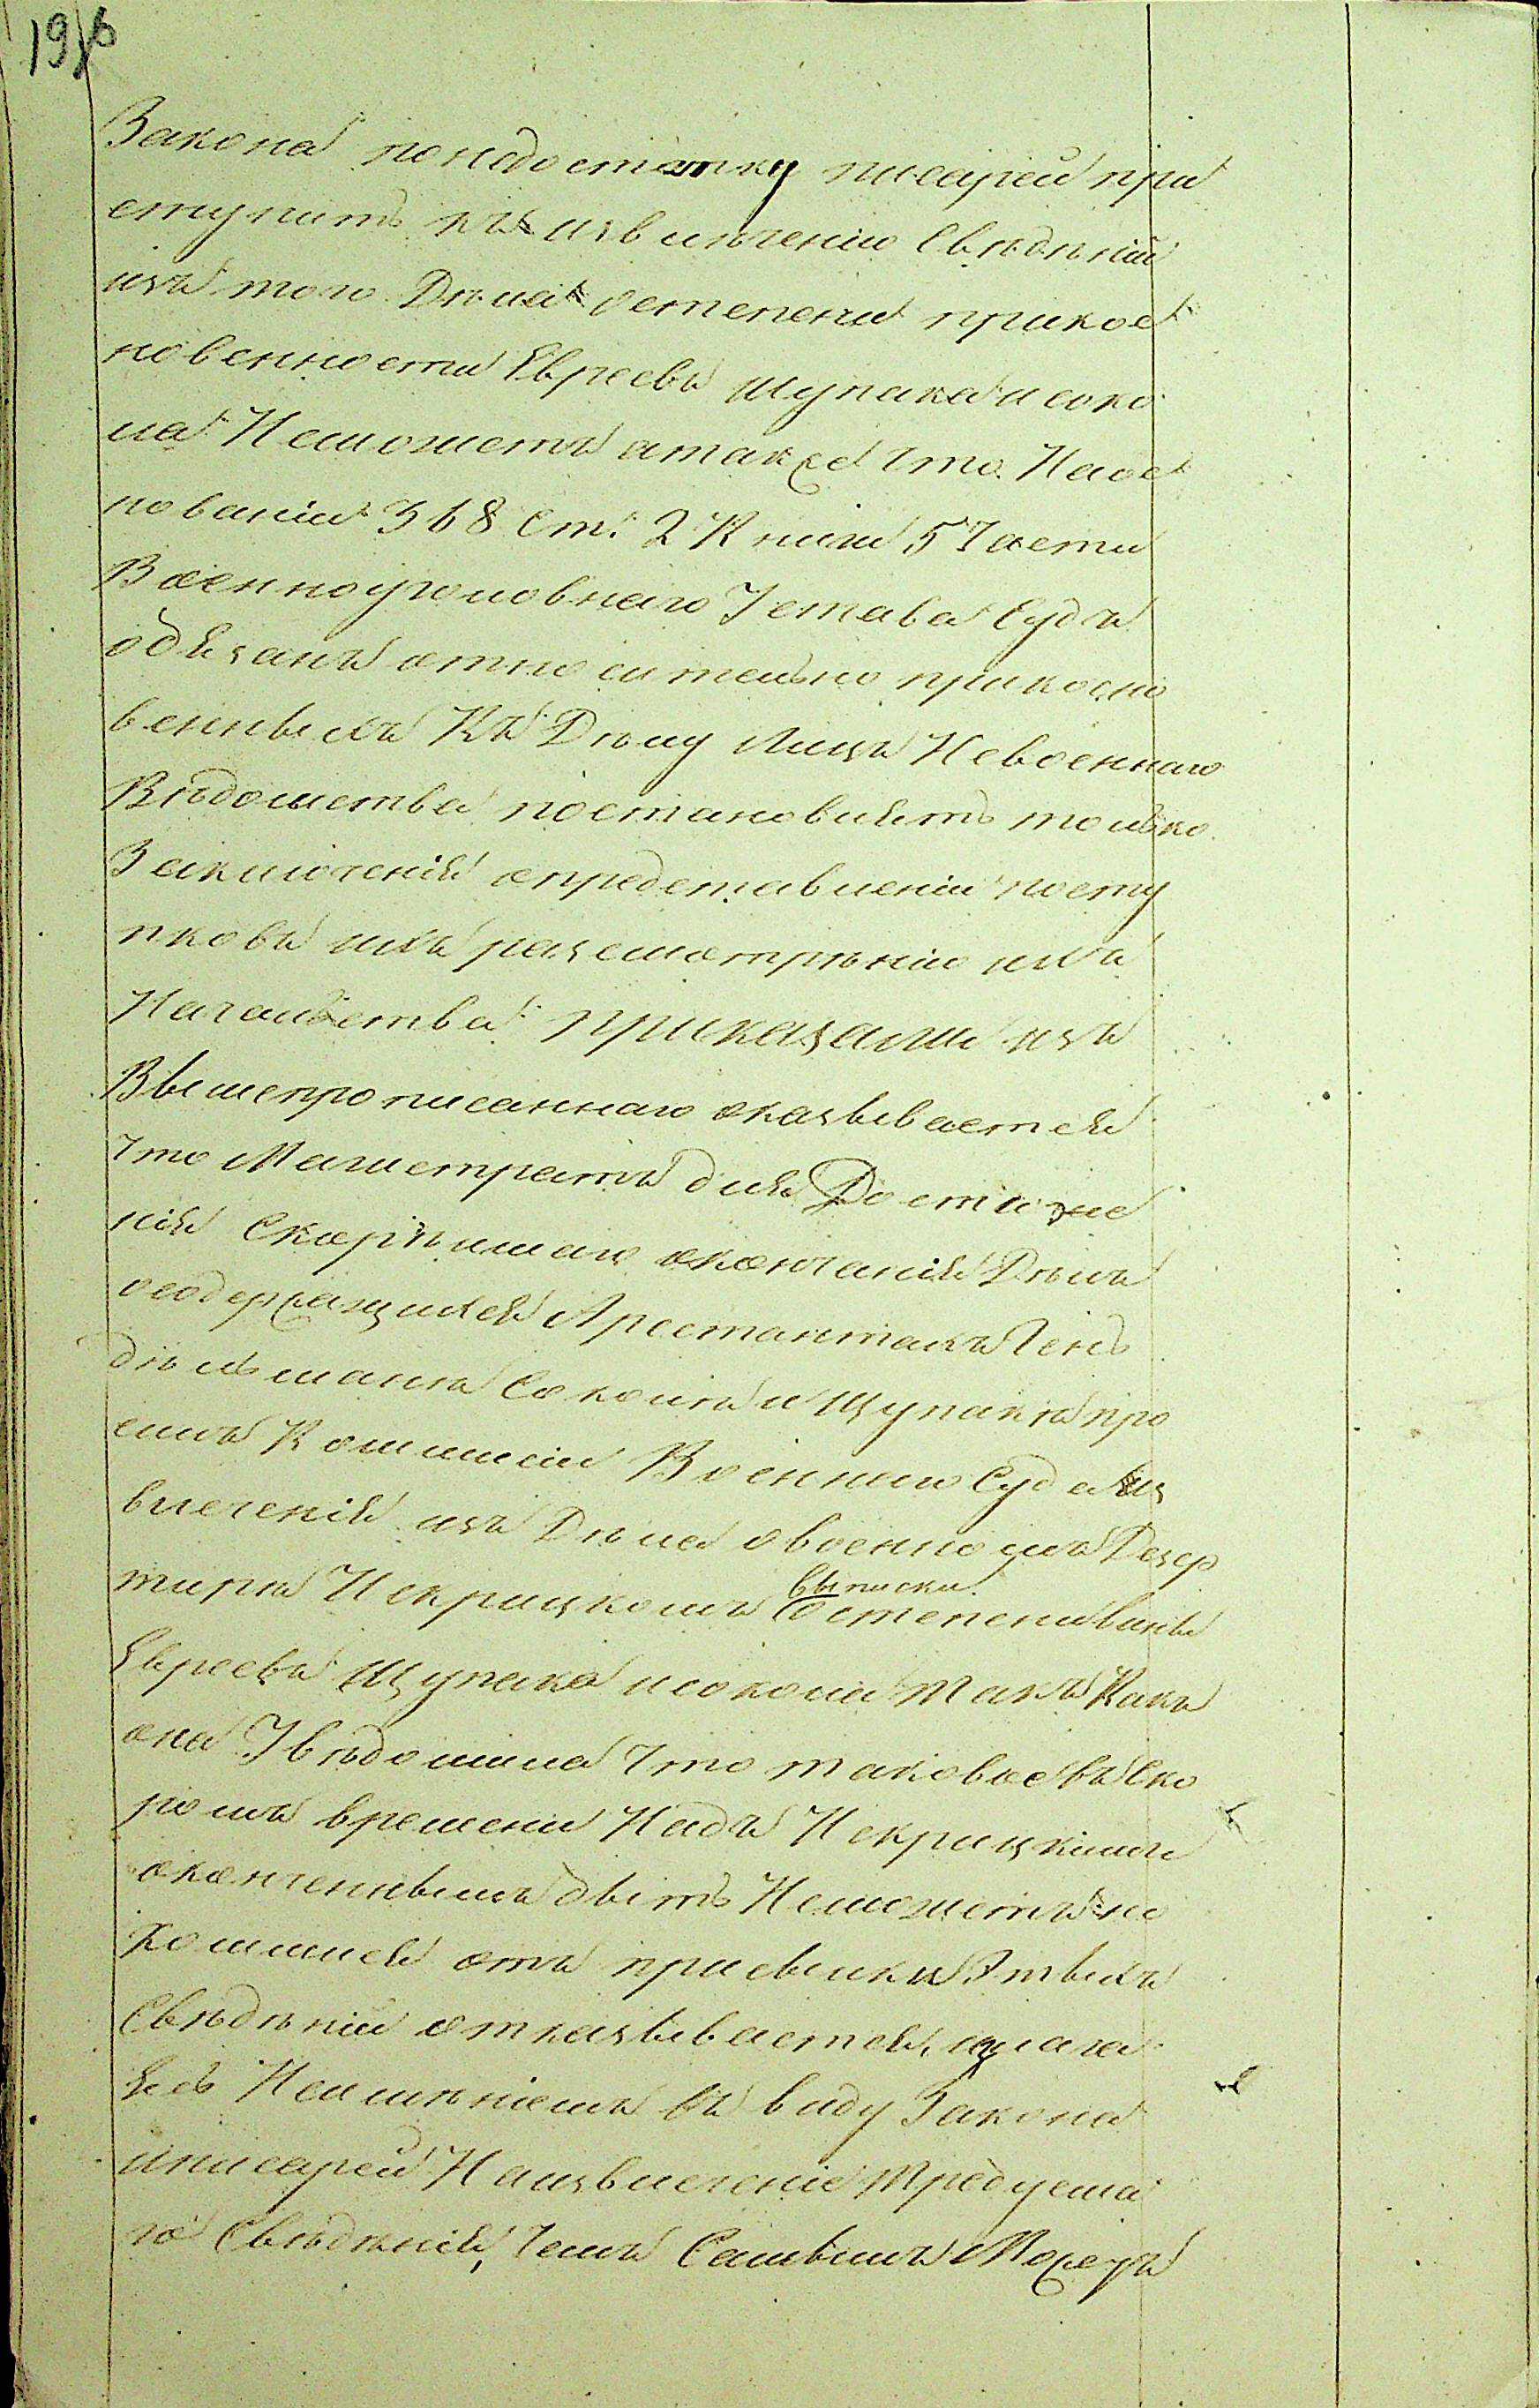 198
Закона понедостатку писарей при
ступить къ извлеченію Свѣдѣній
изъ того Дѣла остепени прикос
новенности Евреевъ Щупака исоко
ла Неможетъ атакже что Наос
нованіи 368 Ст. 2 Книги 5 Части
Военноуголовнаго Устава Судъ
обязанъ относительно прикосно
венныхъ Къ Дѣлу Лицъ Невоеннаго
Вѣдомства постановлять только
Заключенія опредставленіи посту
пковъ ихъ разсмотрѣнію ихъ
Начальства приказали изъ
Вышепрописаннаго оказывается
что Магистратъ для Достиже
нія Скорѣйшаго окончанія Дѣлъ
осодержащихся Арестантахъ Ген
дѣльманѣ Соколѣ и Щупакѣ про
силъ Коммисіи Военнаго Суда из
влеченія изъ Дѣла овоенномъ Дезер
тирѣ Некрицкомъ выписки остепени вины
Евреевъ Щупака исокола Такъ Какъ
она Увѣдомила что таковое въ Ско
ромъ времени Надъ Некрицкимъ
оконченнымъ быть Неможетъ но
Коммисія отъ присылки Этихъ
Свѣдѣній отказывается, излага
ясь Неимѣніемъ въ виду Закона
иписарей Наизвлеченіе Требуема
го Свѣдѣнія, чемъ Самымъ Можетъ